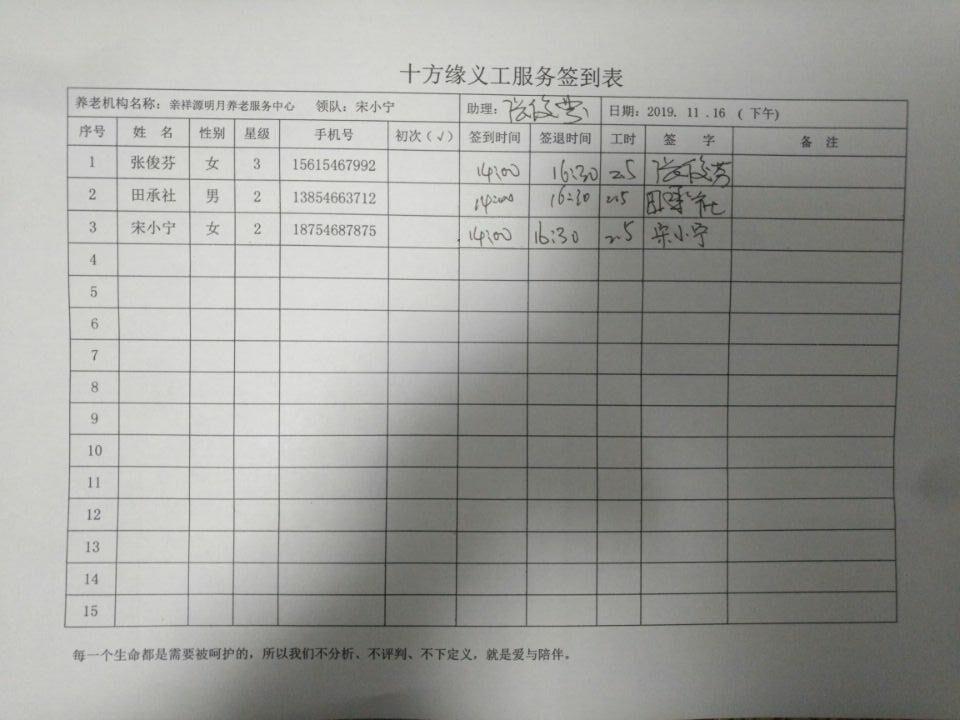 十方缘义工服务签到表
养老机构名称：亲祥源明月养老服务中心 领队：宋小宁 助理：张俊芬 日期：2019. 11 .16 （ 下午）
序号 姓 名 性别 星级 手机号 初次（√） 签到时间 签退时间 工时 签 字 备 注
1 张俊芬 女 3 15615467992 14:00 16:30 2.5 张俊芬
2 田承社 男 2 13854663712 14:00 16:30 2.5 田承社
3 宋小宁 女 2 18754687875 14:00 16:30 2.5 宋小宁
4
5
6
7
8
9
10
11
12
13
14
15
每一个生命都是需要被呵护的，所以我们不分析、不评判、不下定义，就是爱与陪伴。